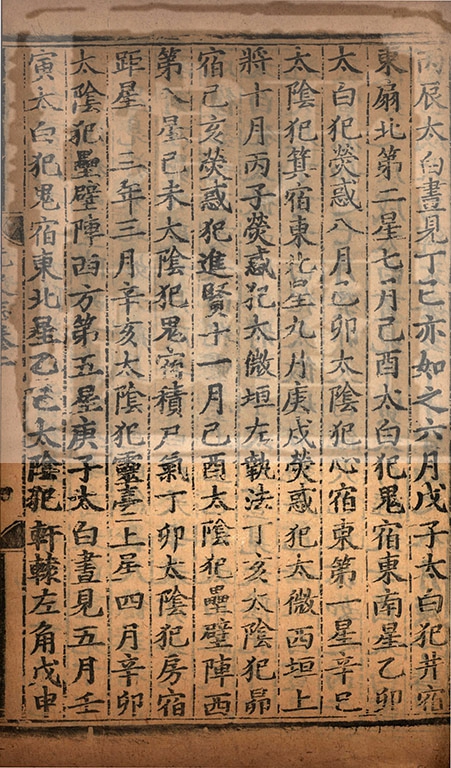 丙辰太白晝見丁巳亦如之六月戊子太白犯井宿
東扇北第二星七月己酉太白犯鬼宿東南星乙卯
太白犯熒惑八月乙卯太陰犯心宿東第一星辛巳
太陰犯箕宿東北星九月庚戌熒惑犯太微西垣上
將十月丙子熒惑犯太微垣左執法丁亥太陰犯昴
宿己亥熒惑犯進賢十一月己酉太陰犯壘壁陣西
第八星己未太陰犯鬼宿積尸氣丁卯太陰犯房宿
距星　三年三月辛亥太陰犯靈臺上星四月辛卯
太陰犯壘壁陣西方第五星庚子太白晝見五月壬
寅太白犯鬼宿東北星乙巳太陰犯軒轅左角戊申